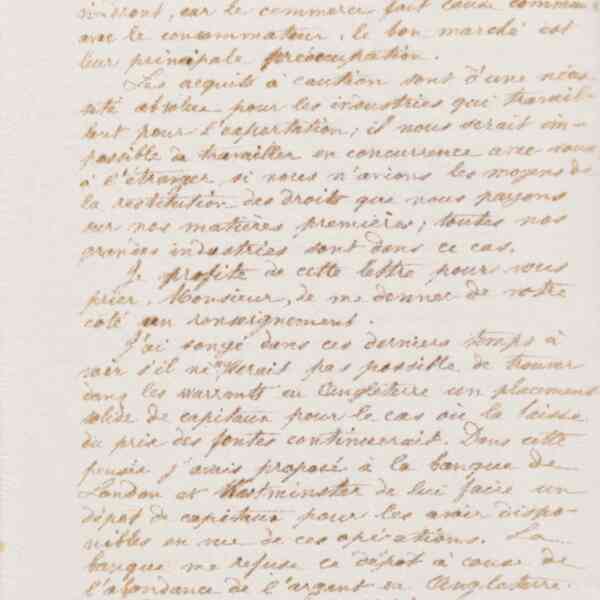 viendront, car le commerce fait cause commune
avec le consommateur, le bon marché est
leur principale préoccupation.
Les acquits à caution sont d'une néces
sité absolue pour les industries qui travail-
lent pour l'exportation; il nous serait im-
possible de travailler en concurrence avec vous
à l'étranger, si nous n'avions les moyens de
la restitution des droits que nous payons
sur nos matières premières; toutes nos
grandes industries sont dans ce cas.
Je profite de cette lettre pour vous
prier, Monsieur, de me donner de votre
côté un renseignement.
J'ai songé dans ces derniers temps à
voir s'il ne serait pas possible de trouver
dans les warrants en Angleterre un placement
solide de capitaux pour le cas où la baisse
du prix des fontes continuerait. Dans cette
pensée j'avais proposé à la banque de
London et Westminster de lui faire un
dépôt de capitaux pour les avoir dispo-
nibles en vue de ces opérations. La
banque me refuse ce dépôt à cause de
l'abondance de l'argent en Angleterre.